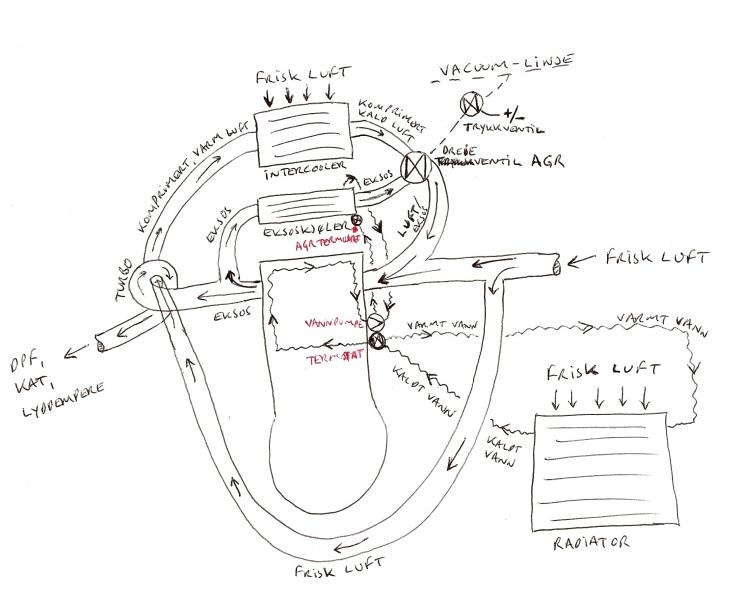 VACUUM-LINJE
FRISK LUFT
+/-
TRYKKVENTIL
KOMPRIMERT
KALD LUFT
KOMPRIMERT, VARM LUFT
INTERCOOLER
DREIE
VENTIL AGR
EKSOS
EKSOS
EKSOSKJØLER
AGR TERMOSTAT
LUFT/
EKSOS
TURBO
FRISK LUFT
EKSOS
VANNPUMPE
VARMT VANN
VARMT VANN
TERMOSTAT
DPF,
KAT,
LYDDEMPERE
KALDT VANN
FRISK LUFT
KALDT
VANN
RADIATOR
FRISK LUFT